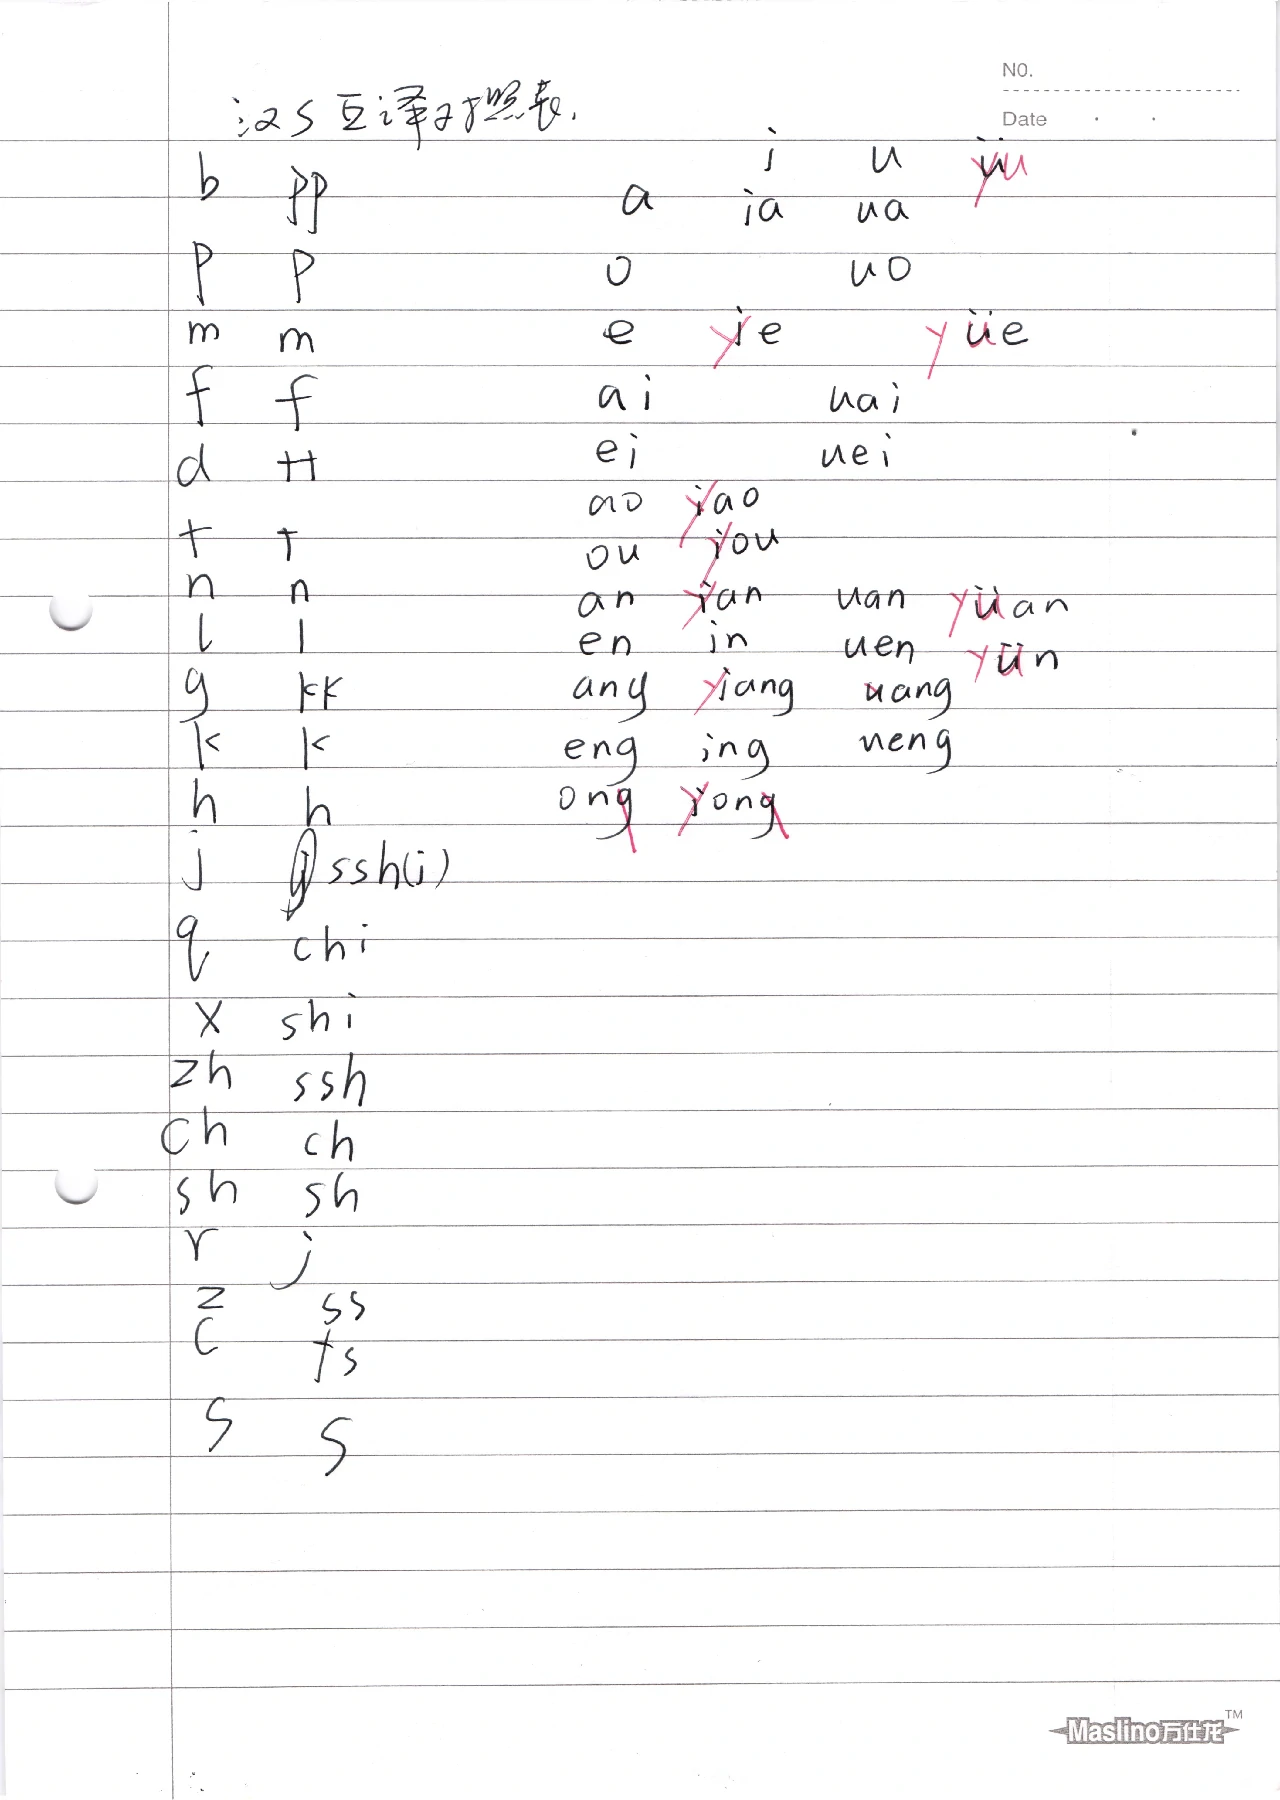 NO.
Date
汉S互译对照表.
i u yu
b pp a ia ua
p p o uo
m m e yie yüe
f f ai uai
d tt ei uei
ao yao
t t ou you
n n an yan uan yuan
l l en in uen yun
g kk ang yiang uang
k k eng ing ueng
h h ong yong
j ssh(i)
q chi
x shi
zh ssh
ch ch
sh sh
r j
z ss
c ts
s s
Maslino万仕托™